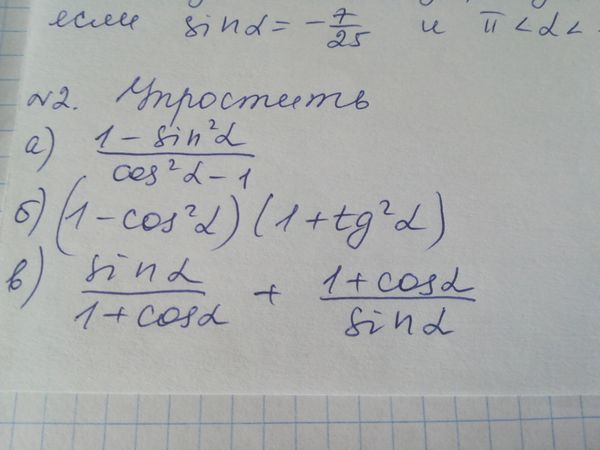 если sinα = -7/25 и π < α <
№2. Упростить
а) (1 - sin²α)/(cos²α - 1)
б) (1 - cos²α)(1 + tg²α)
в) sinα/(1 + cosα) + (1 + cosα)/sinα